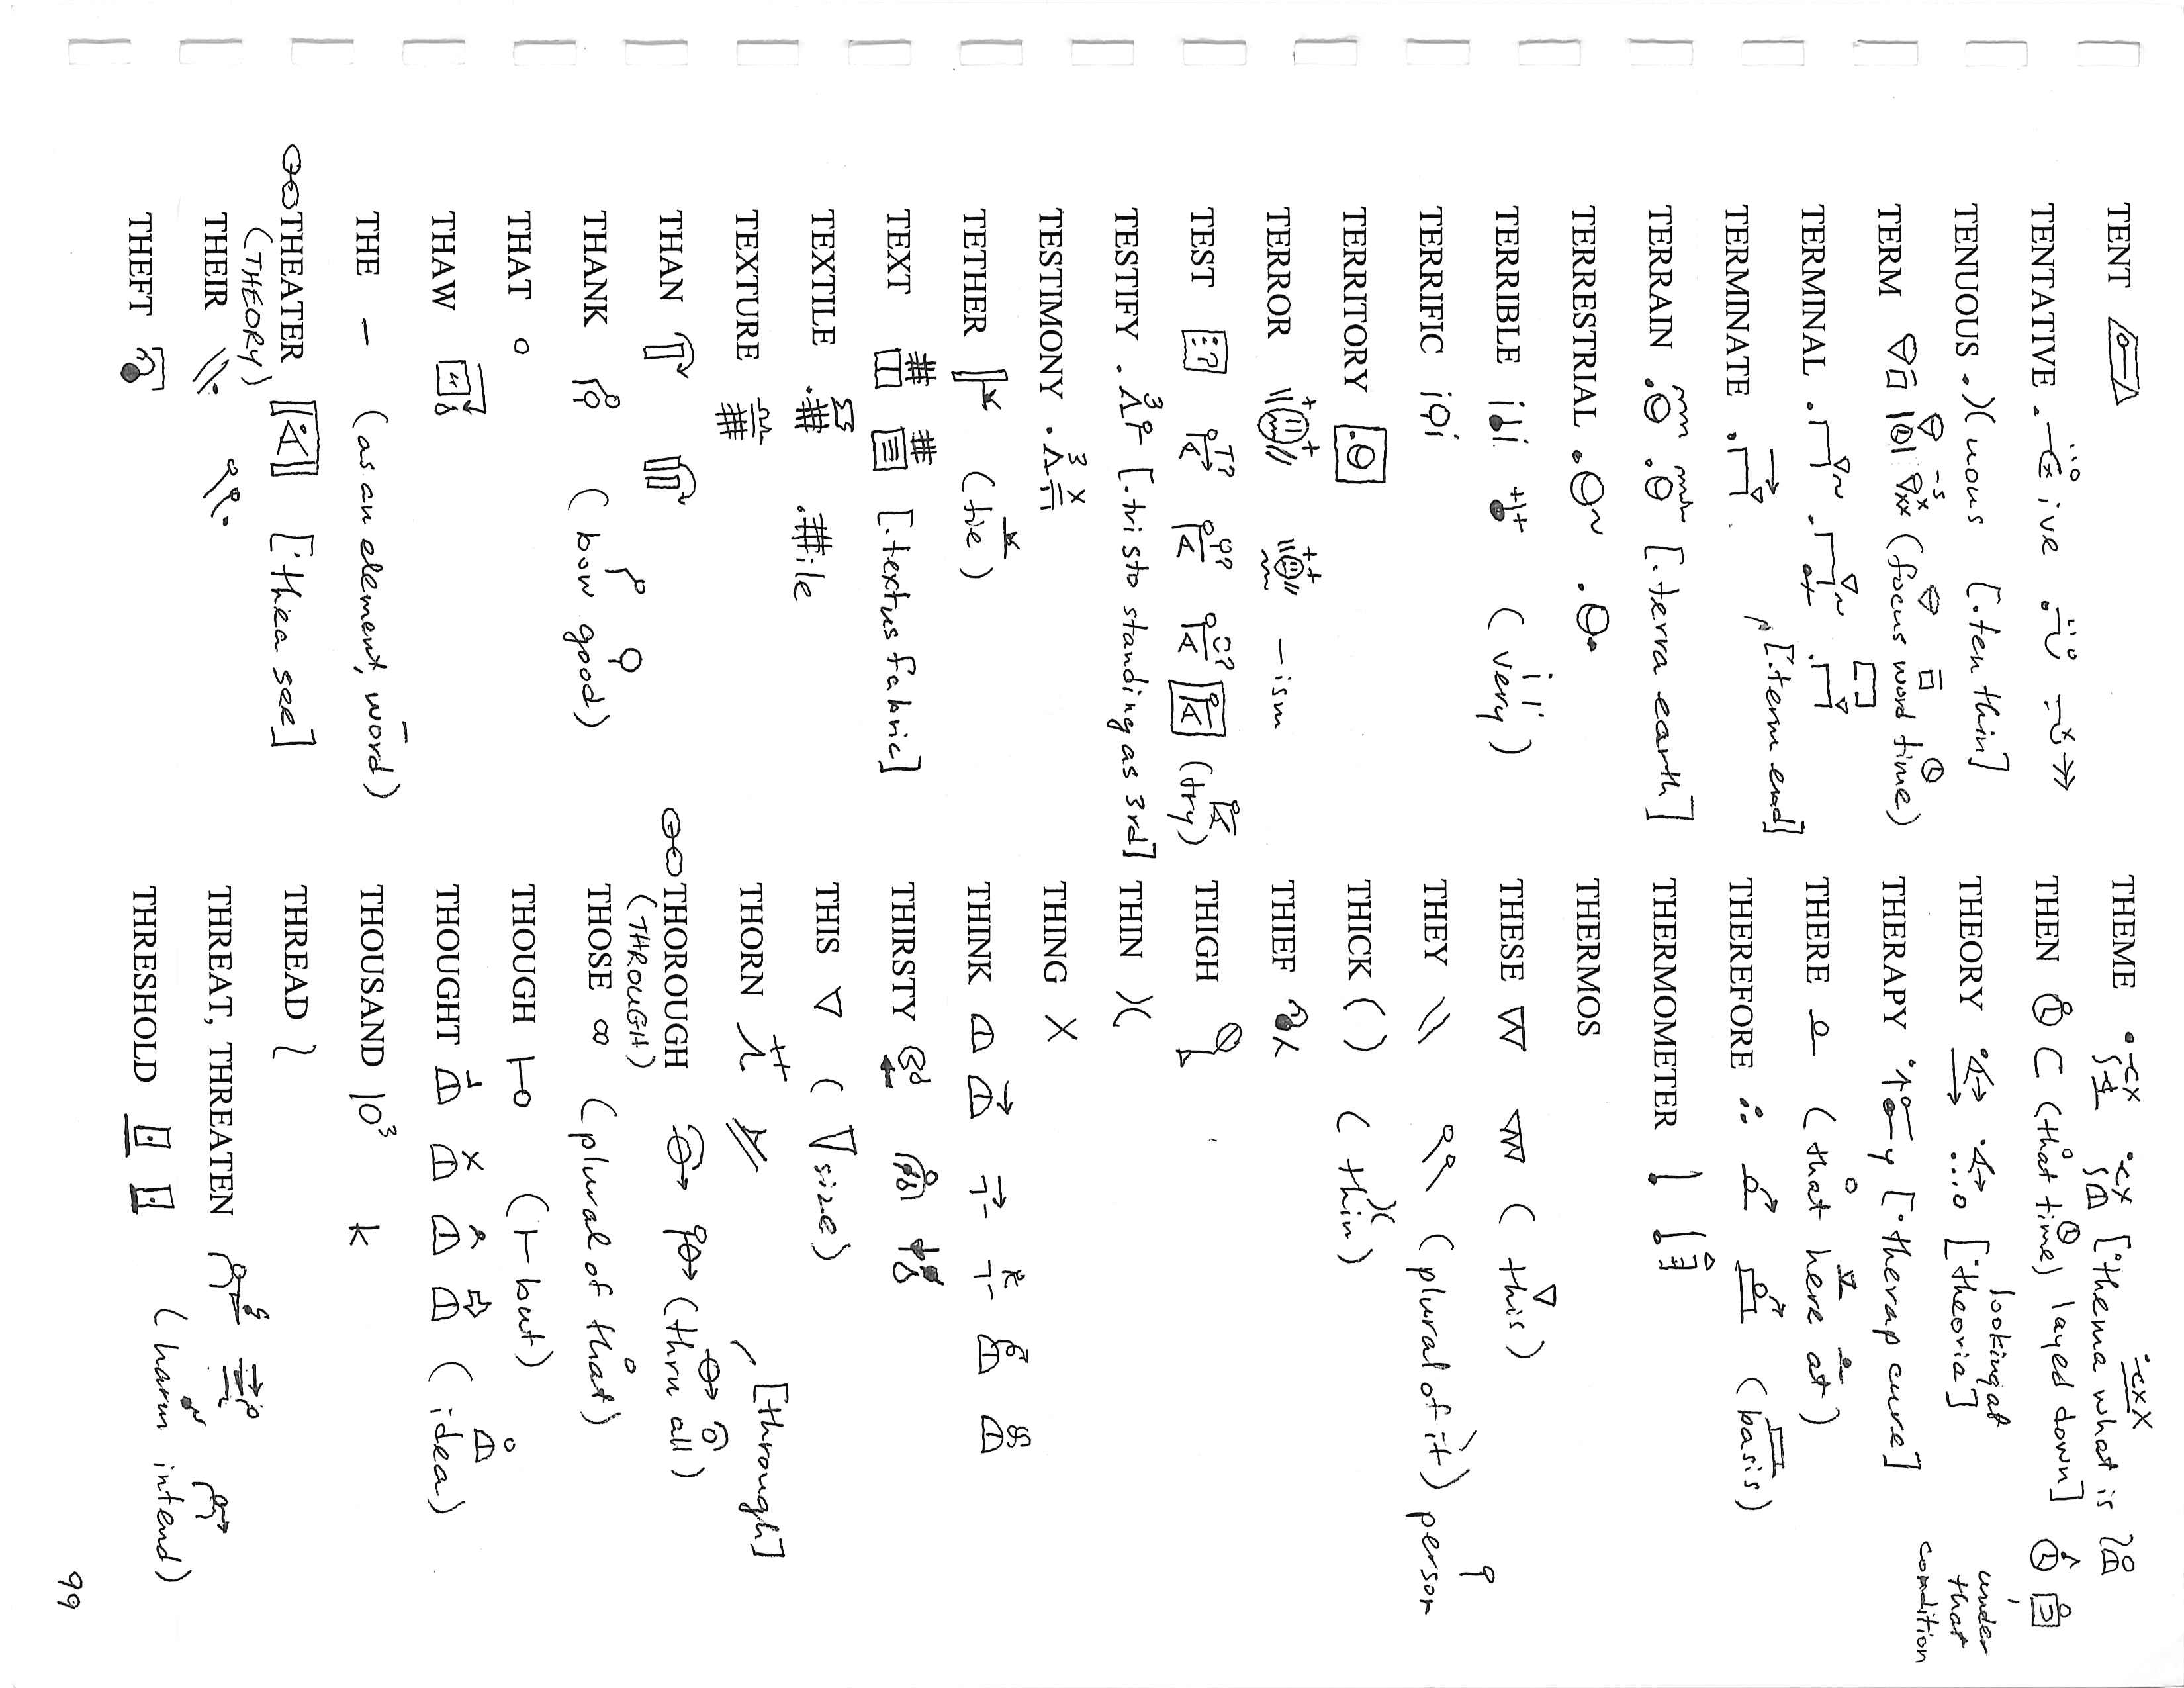 TENT
TENTATIVE ive
TENUOUS .)( uous [.ten thin]
TERM (focus word time)
TERMINAL
TERMINATE [.term end]
TERRAIN [.terra earth]
TERRESTRIAL
TERRIBLE (very)
TERRIFIC
TERRITORY
TERROR -ism
TEST (try)
TESTIFY [.tristo standing as 3rd]
TESTIMONY
TETHER (tie)
TEXT [.textus fabric]
TEXTILE ile
TEXTURE
THAN
THANK (bow good)
THAT o
THAW
THE — (as an element, word)
THEATER [:thea see]
(THEORY)
THEIR
THEFT
THEME [:thema what is
THEN (that time) layed down]
THEORY [:theoria] looking at
under that condition
THERAPY y [:therap cure]
THERE (that here at)
THEREFORE (basis)
THERMOMETER
THERMOS
THESE (this)
THEY (plural of it) person
THICK ( ) (thin)
THIEF
THIGH
THIN )(
THING X
THINK
THIRSTY
THIS ▽ (▽ size)
THORN
THOROUGH (thru all) [through]
(THROUGH)
THOSE (plural of that)
THOUGH (but)
THOUGHT (idea)
THOUSAND 10³ k
THREAD
THREAT, THREATEN (harm intend)
THRESHOLD
99